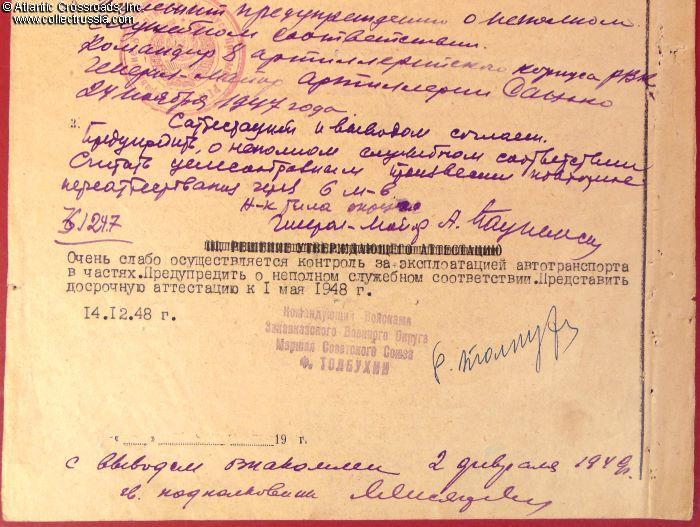 © Atlantic Crossroads, Inc.
www.collectrussia.com
предупреждения о неполном
служебном соответствии.
Командир 8 артиллерийского корпуса РВК
Генерал-майор артиллерии
24 ноября 1947 года
3. С аттестацией и выводом согласен.
Предупредить о неполном служебном соответствии
Считать целесообразным произвести повторное
через 6 м-в
Н-к тыла округа
Генерал-майор А.
III. РЕШЕНИЕ УТВЕРЖДАЮЩЕГО АТТЕСТАЦИЮ
Очень слабо осуществляется контроль за эксплоатацией автотранспорта
в частях.Предупредить о неполном служебном соответствии.Представить
досрочную аттестацию к I мая 1948 г.
14.I2.48 г.
Командующий Войсками
Закавказского Военного Округа
Маршал Советского Союза
Ф. ТОЛБУХИН
Ф. Толбухин
"__" ________ 19 г.
с выводом ознакомлен 2 февраля 1949г.
гв. подполковник